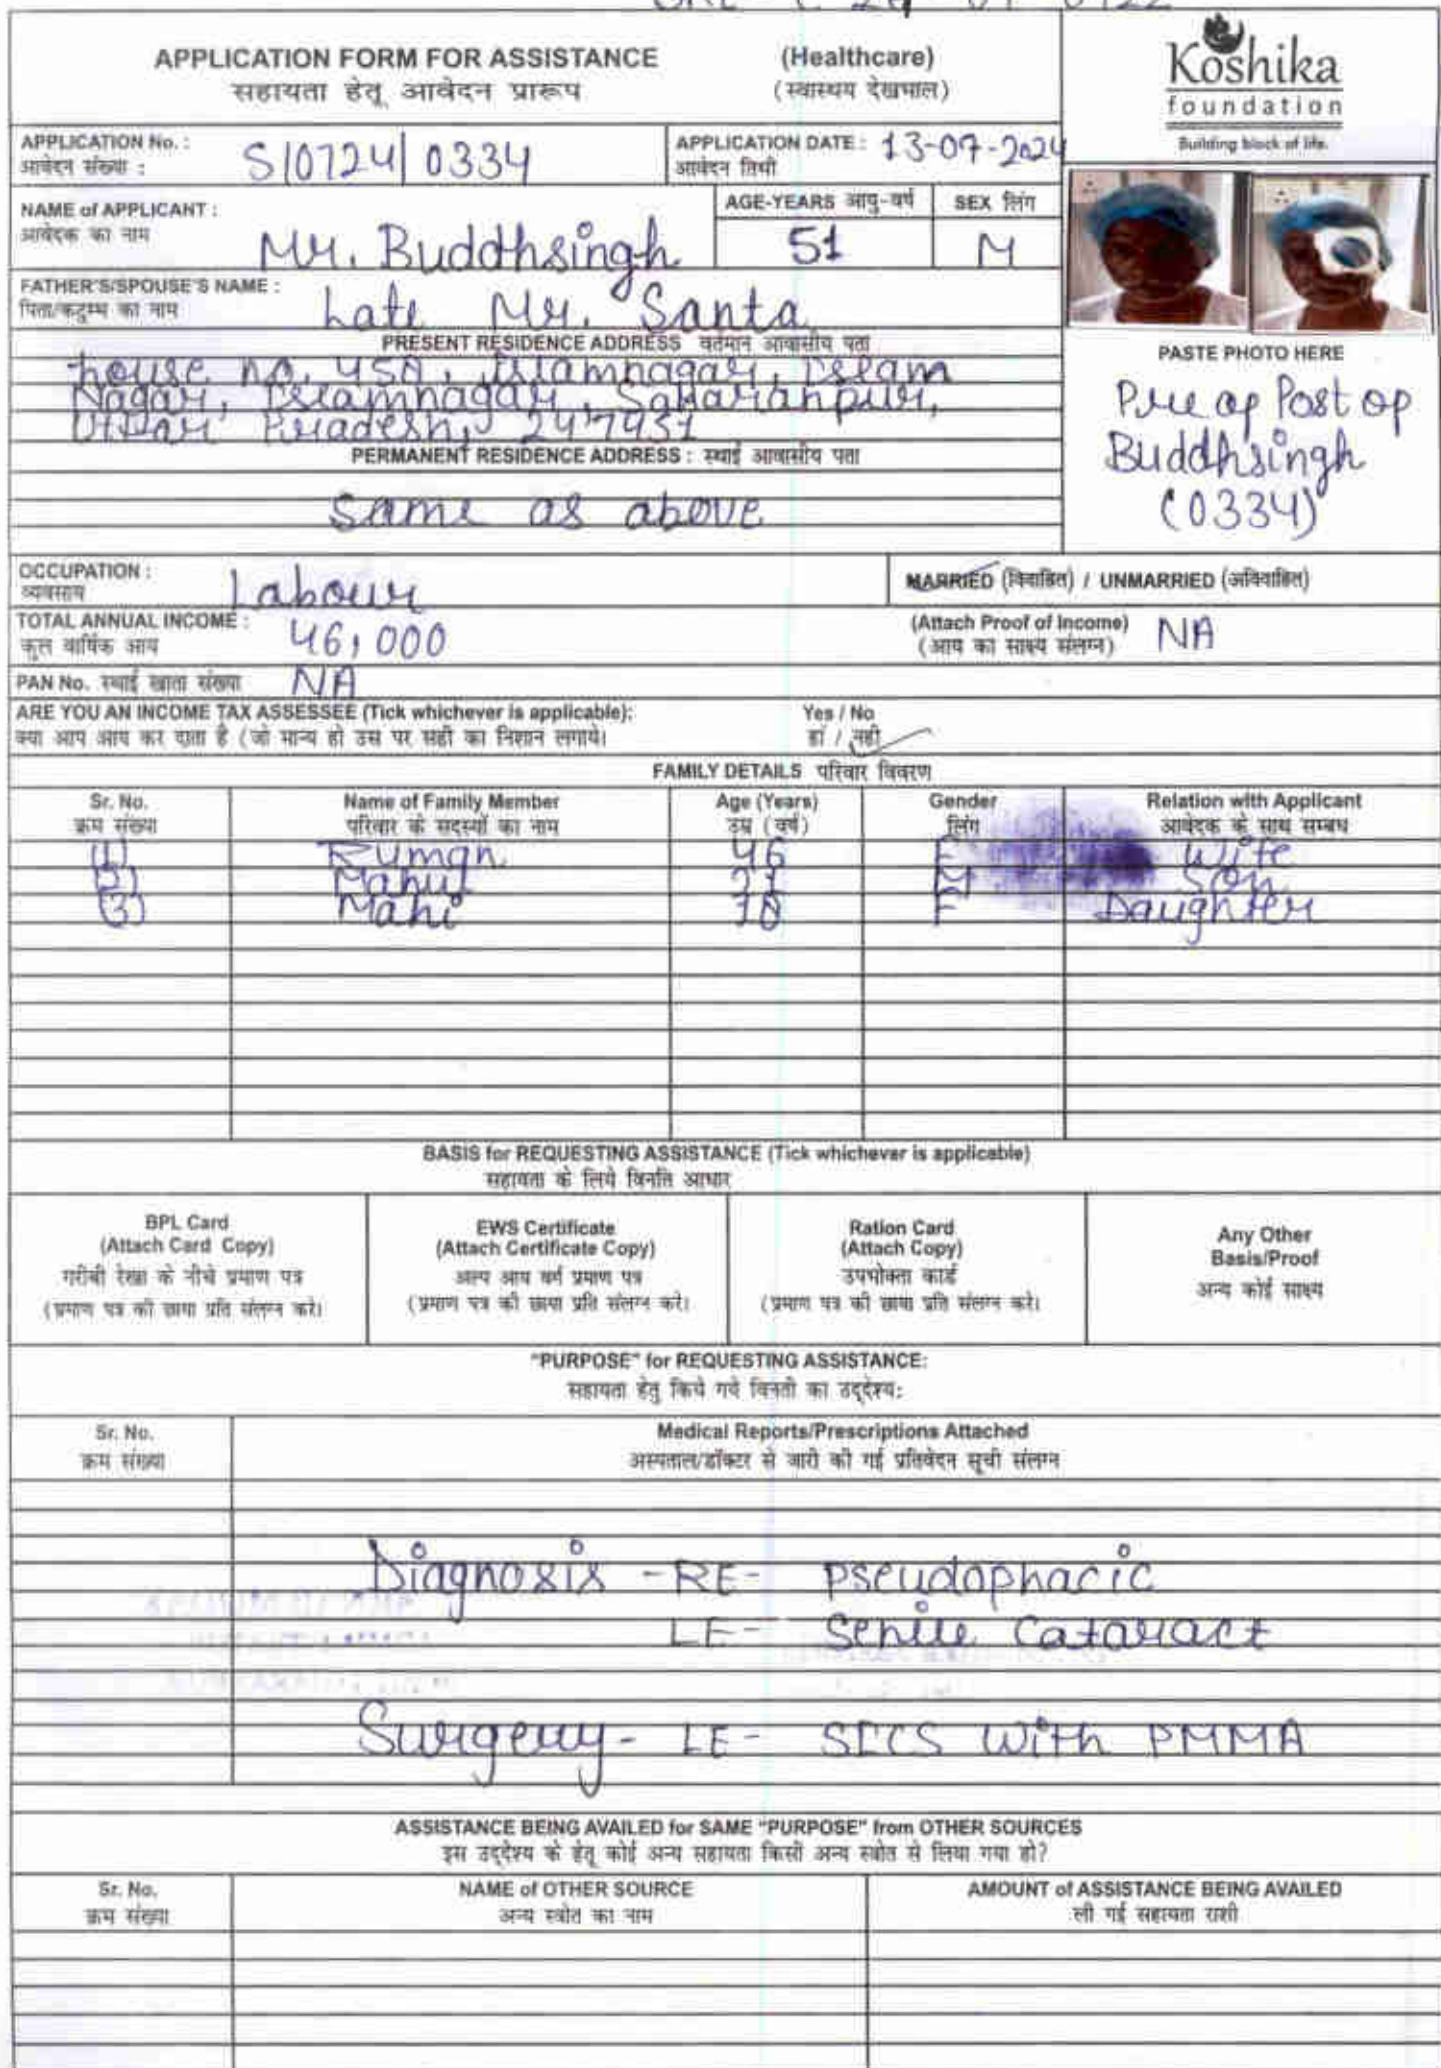 APPLICATION FORM FOR ASSISTANCE (Healthcare)
सहायता हेतू आवेदन प्रारूप (स्वास्थय देखभाल)
Koshika
foundation
Building block of life.
APPLICATION No. : S/0724/0334 APPLICATION DATE : 13-07-2024
आवेदन संख्या : आवेदन तिथी
NAME of APPLICANT : Mr. Buddhsingh AGE-YEARS आयु-वर्ष 51 SEX लिंग M
आवेदक का नाम
FATHER'S/SPOUSE'S NAME : Late Mr. Santa
पिता/कटुम्ब का नाम
PRESENT RESIDENCE ADDRESS वर्तमान आवासीय पता
house no. 458, Islamnagar, Islam
Nagar, Islamnagar, Saharanpur,
Uttar Pradesh, 247931
PERMANENT RESIDENCE ADDRESS : स्थाई आवासीय पता
Same as above
PASTE PHOTO HERE
Pre op Post op
Buddhsingh
(0334)
OCCUPATION : Labour MARRIED (विवाहित) / UNMARRIED (अविवाहित)
व्यवसाय
TOTAL ANNUAL INCOME : 46,000 (Attach Proof of Income) NA
कुल वार्षिक आय (आय का साक्ष्य संलग्न)
PAN No. स्थाई खाता संख्या NA
ARE YOU AN INCOME TAX ASSESSEE (Tick whichever is applicable): Yes / No
क्या आप आय कर दाता है (जो मान्य हो उस पर सही का निशान लगाये। हां / नही
FAMILY DETAILS परिवार विवरण
Sr. No. Name of Family Member Age (Years) Gender Relation with Applicant
क्रम संख्या परिवार के सदस्यों का नाम उम्र (वर्ष) लिंग आवेदक के साथ सम्बध
(1) Ruman 46 F Wife
(2) Mahul M Son
(3) Mahi F Daughter
BASIS for REQUESTING ASSISTANCE (Tick whichever is applicable)
सहायता के लिये विनति आधार
BPL Card
(Attach Card Copy)
गरीबी रेखा के नीचे प्रमाण पत्र
(प्रमाण पत्र की छाया प्रति संलग्न करे।
EWS Certificate
(Attach Certificate Copy)
अल्प आय वर्ग प्रमाण पत्र
(प्रमाण पत्र की छाया प्रति संलग्न करे।
Ration Card
(Attach Copy)
उपभोक्ता कार्ड
(प्रमाण पत्र की छाया प्रति संलग्न करे।
Any Other
Basis/Proof
अन्य कोई साक्ष्य
"PURPOSE" for REQUESTING ASSISTANCE:
सहायता हेतु किये गये विनती का उद्देश्य:
Sr. No. Medical Reports/Prescriptions Attached
क्रम संख्या अस्पताल/डॉक्टर से जारी की गई प्रतिवेदन सूची संलग्न
Diagnosis - RE - pseudophacic
LE - Senile Cataract
Surgery - LE - SICS with PMMA
ASSISTANCE BEING AVAILED for SAME "PURPOSE" from OTHER SOURCES
इस उद्देश्य के हेतू कोई अन्य सहायता किसी अन्य स्त्रोत से लिया गया हो?
Sr. No. NAME of OTHER SOURCE AMOUNT of ASSISTANCE BEING AVAILED
क्रम संख्या अन्य स्त्रोत का नाम ली गई सहायता राशी